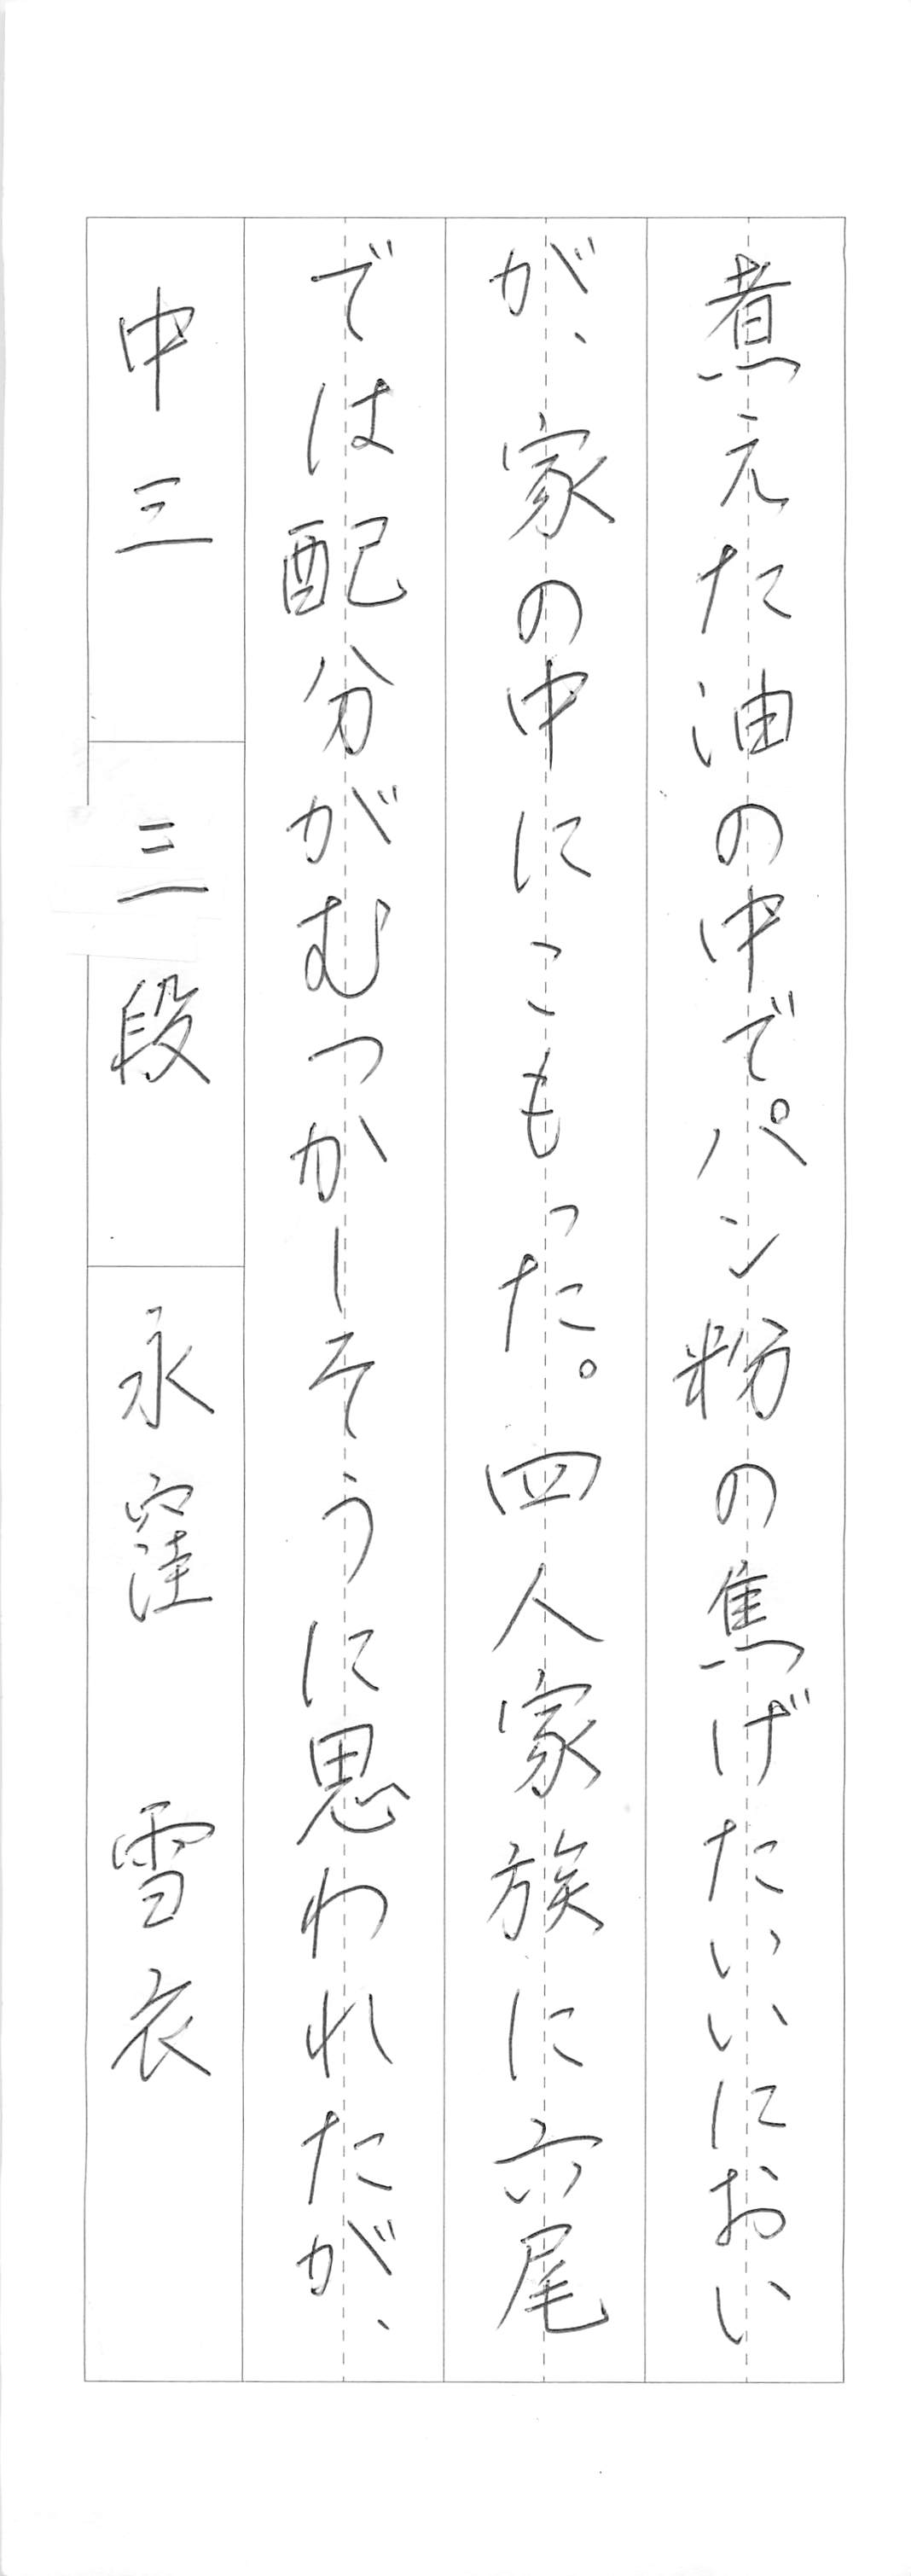 煮えた油の中でパン粉の焦げたいいにおい
が、家の中にこもった。四人家族に六尾
では配分がむつかしそうに思われたが、
中三 三段 永窪 雪衣